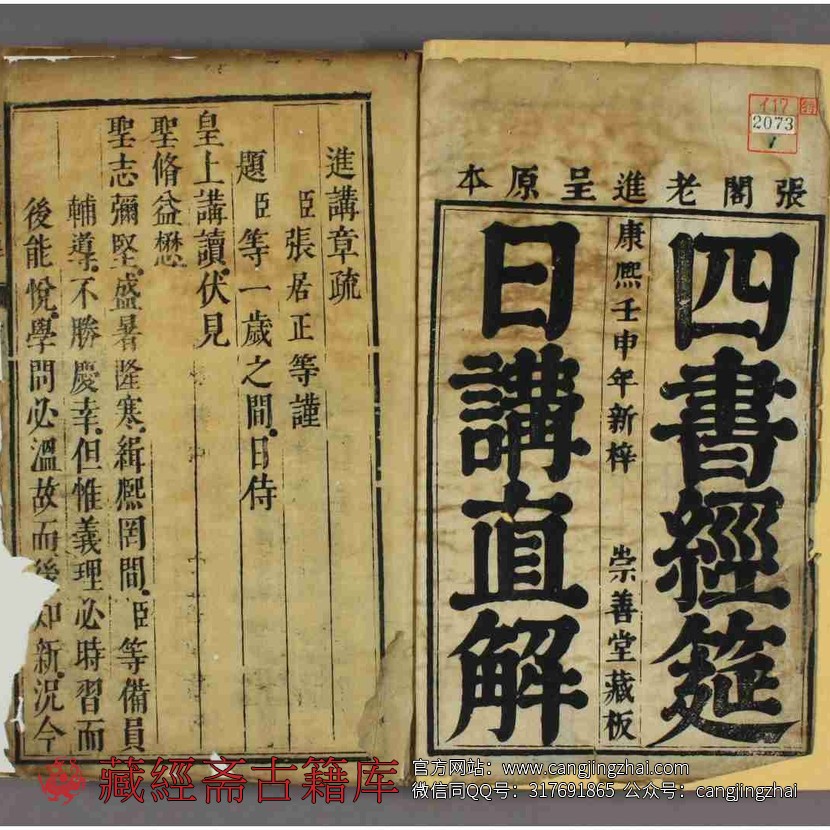 張閣老進呈原本
四書經筵
康熙壬申年新梓 崇善堂藏板
日講直解
イ17
2073
1
進講章疏
臣張居正等謹
題臣等一歲之間日侍
皇上講讀伏見
聖脩益懋
聖志彌堅盛暑隆寒緝熙罔間臣等備員
輔導不勝慶幸但惟義理必時習而
後能悅學問必溫故而後知新況今
藏經斋古籍库
官方网站：www.cangjingzhai.com
微信同QQ号：317691865 公众号：cangjingzhai